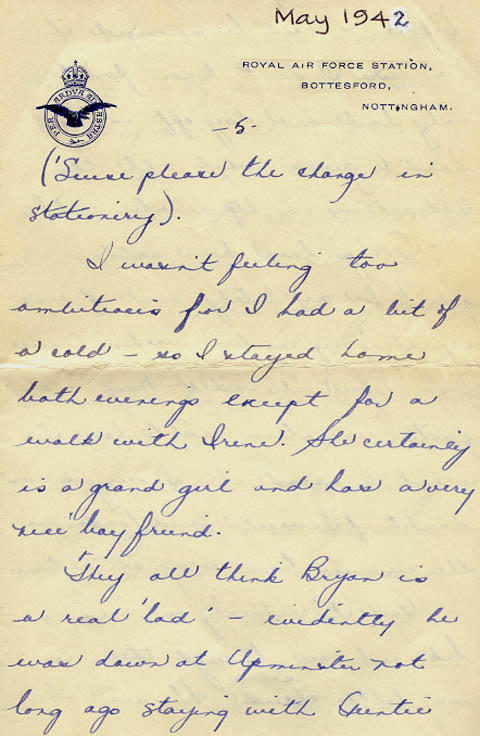 May 1942
ROYAL AIR FORCE STATION,
BOTTESFORD,
NOTTINGHAM.
PER ARDVA AD ASTRA
- 5 -
('Scuse please the change in
stationery).
I wasn't feeling too
ambitious for I had a bit of
a cold – so I stayed home
both evenings except for a
walk with Irene. She certainly
is a grand girl and has a very
nice boy friend.
They all think Bryan is
a real 'lad' – evidently he
was down at Upminster not
long ago staying with Auntie